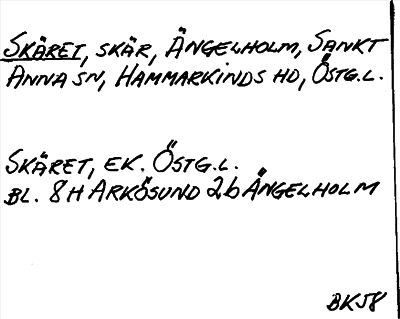 SKÄRET, SKÄR, ÄNGELHOLM, SANKT
ANNA SN, HAMMARKINDS HD, ÖSTG.L.
SKÄRET, EK. ÖSTG.L.
BL. 8H ARKÖSUND 2b ÄNGELHOLM
BK58